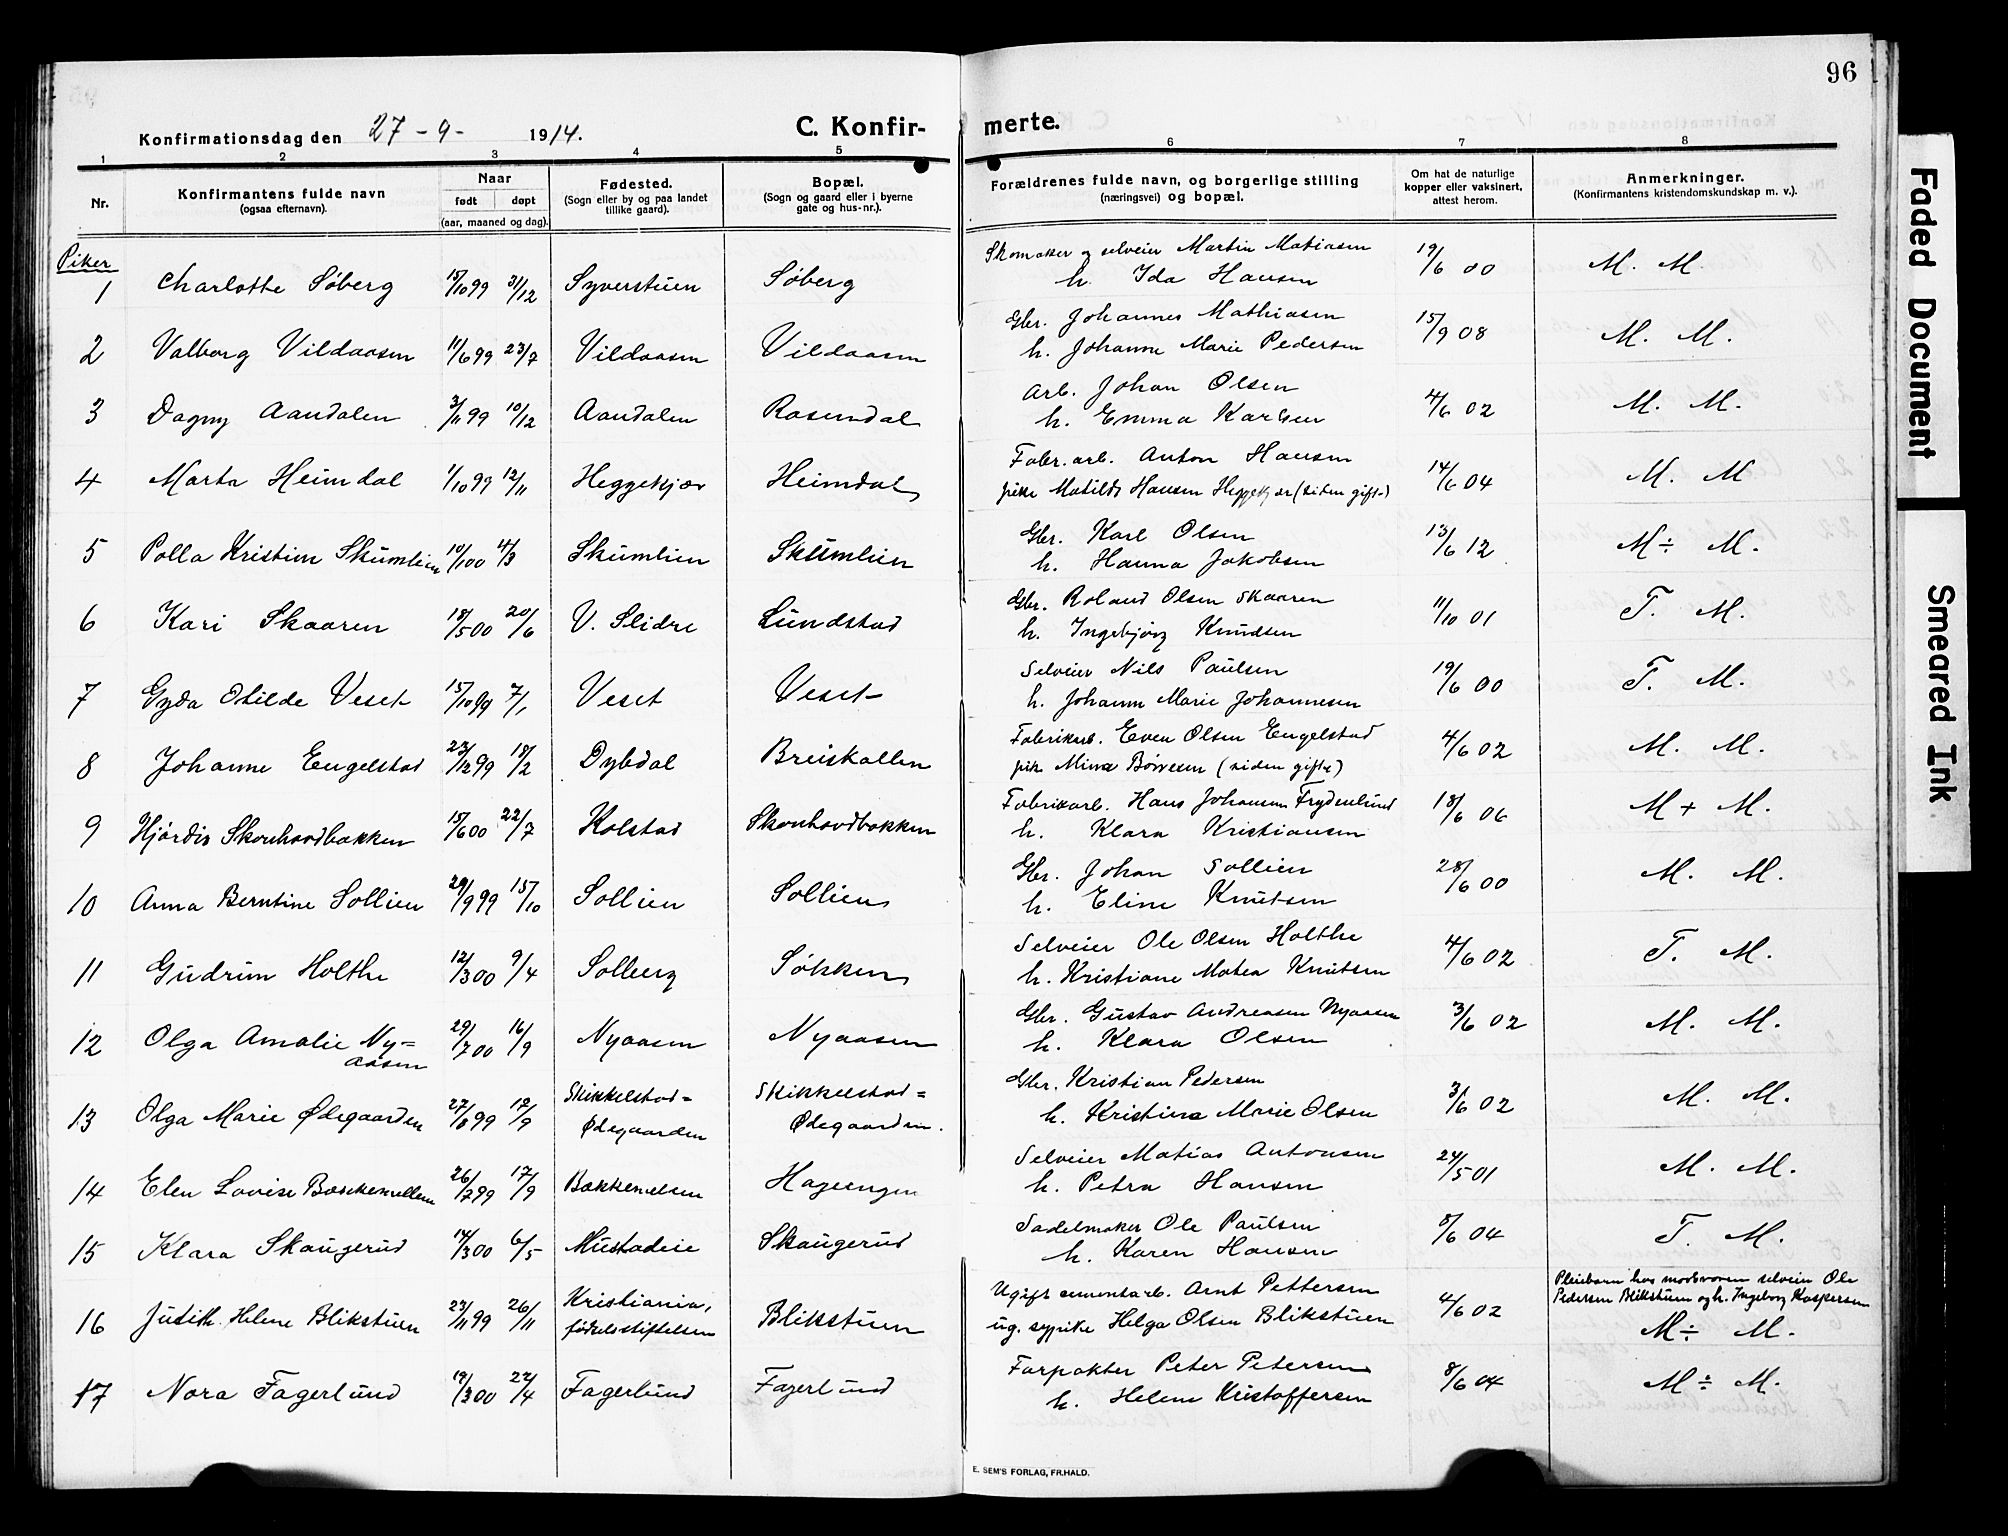 96
Konfirmationsdag den 27-9- 1914.
C. Konfir-
merte.
1 2 3 4 5 6 7 8
Nr.
Konfirmantens fulde navn
(ogsaa efternavn).
Naar
født døpt
(aar, maaned og dag).
Fødested.
(Sogn eller by og paa landet
tillike gaard).
Bopæl.
(Sogn og gaard eller i byerne
gate og hus-nr.).
Forældrenes fulde navn, og borgerlige stilling
(næringsvei) og bopæl.
Om hat de naturlige
kopper eller vaksinert,
attest herom.
Anmerkninger.
(Konfirmantens kristendomskundskap m. v.).
Piker
1 Charlotte Søberg 15/10 99 31/12 Syverstuen Søberg Skomaker og selveier Martin Matiasen 19/6 00 M. M.
h. Ida Hansen
2 Valborg Vildaasen 11/6 99 23/7 Vildaasen Vildaasen Gbr. Johannes Mathiasen 15/9 08 M. M.
h. Johanne Marie Pedersen
3 Dagny Aandalen 3/11 99 10/12 Aandalen Rosendal Arb. Johan Olsen 4/6 02 M. M.
h. Emma Karlsen
4 Marta Heimdal 1/10 99 12/11 Heggekjær Heimdal Fabr. arb. Anton Hansen 14/6 04 M. M
pike Matilde Hansen Heggekjær (siden gift)
5 Polla Kristine Skumlien 10/1 00 4/3 Skumlien Skumlien Gbr. Karl Olsen 13/6 12 M÷ M.
h. Hanna Jakobsen
6 Kari Skaaren 18/5 00 20/6 V. Slidre Lundstad Gbr. Roland Olsen Skaaren 11/10 01 T. M.
h. Ingebjørg Knudsen
7 Gyda Otilde Veset 15/10 99 7/1 Veset Veset Selveier Nils Paulsen 19/6 00 T. M.
h. Johanne Marie Johannesen
8 Johanne Engelstad 23/12 99 18/2 Dybdal Breiskallen Fabrikarb. Even Olsen Engelstad 4/6 02 M. M.
pik. Mina Børresen (siden gifte)
9 Hjørdis Skonhovdbakken 15/6 00 22/7 Kolstad Skonhovdbakken Fabrikarb. Hans Johansen Frydenlund 18/6 06 M + M.
h. Klara Kristiansen
10 Anna Berntine Sollien 29/9 99 15/10 Sollien Sollien Gbr. Johan Sollien 28/6 00 M. M.
h. Eline Knutsen
11 Gudrun Holthe 12/3 00 9/4 Solberg Søkken Selveier Ole Olsen Holthe 4/6 02 T. M.
h. Kristiane Matea Knutsen
12 Olga Amalie Ny= 29/7 00 16/9 Nyaasen Nyaasen Gbr. Gustav Andreasen Nyaasen 3/6 02 M. M.
aasen h. Klara Olsen
13 Olga Marie Ødegaarden 27/8 99 17/9 Skikkelstad= Skikkelstad= Gbr. Kristian Pedersen 3/6 02 M. M.
Ødegaarden Ødegaarden. h. Kristina Marie Olsen
14 Elen Lovise Bækkemellem 26/7 99 17/9 Bækkemellem Hageengen Selveier Matias Antonsen 24/5 01 M. M.
h. Petra Hansen
15 Klara Skaugerud 14/3 00 6/5 Mustadeie Skaugerud Sadelmaker Ole Paulsen 8/6 04 T. M.
h. Karen Hansen
16 Judith Helene Blikstuen 23/11 99 26/11 Kristiania, Blikstuen Ugift cementarb. Arnt Pettersen 4/6 02 Pleiebarn hos morbroren selveier Ole
fødselsstiftelsen ug. sypike Helga Olsen Blikstuen Pedersen Blikstuen og h. Ingeborg Kaspersen
M÷ M.
17 Nora Fagerlund 19/3 00 22/4 Fagerlund Fagerlund Forpakter Peter Petersen 8/6 04 M÷ M.
h. Helene Kristoffersen
E. SEM'S FORLAG, FR.HALD.
Faded Document
Smeared Ink